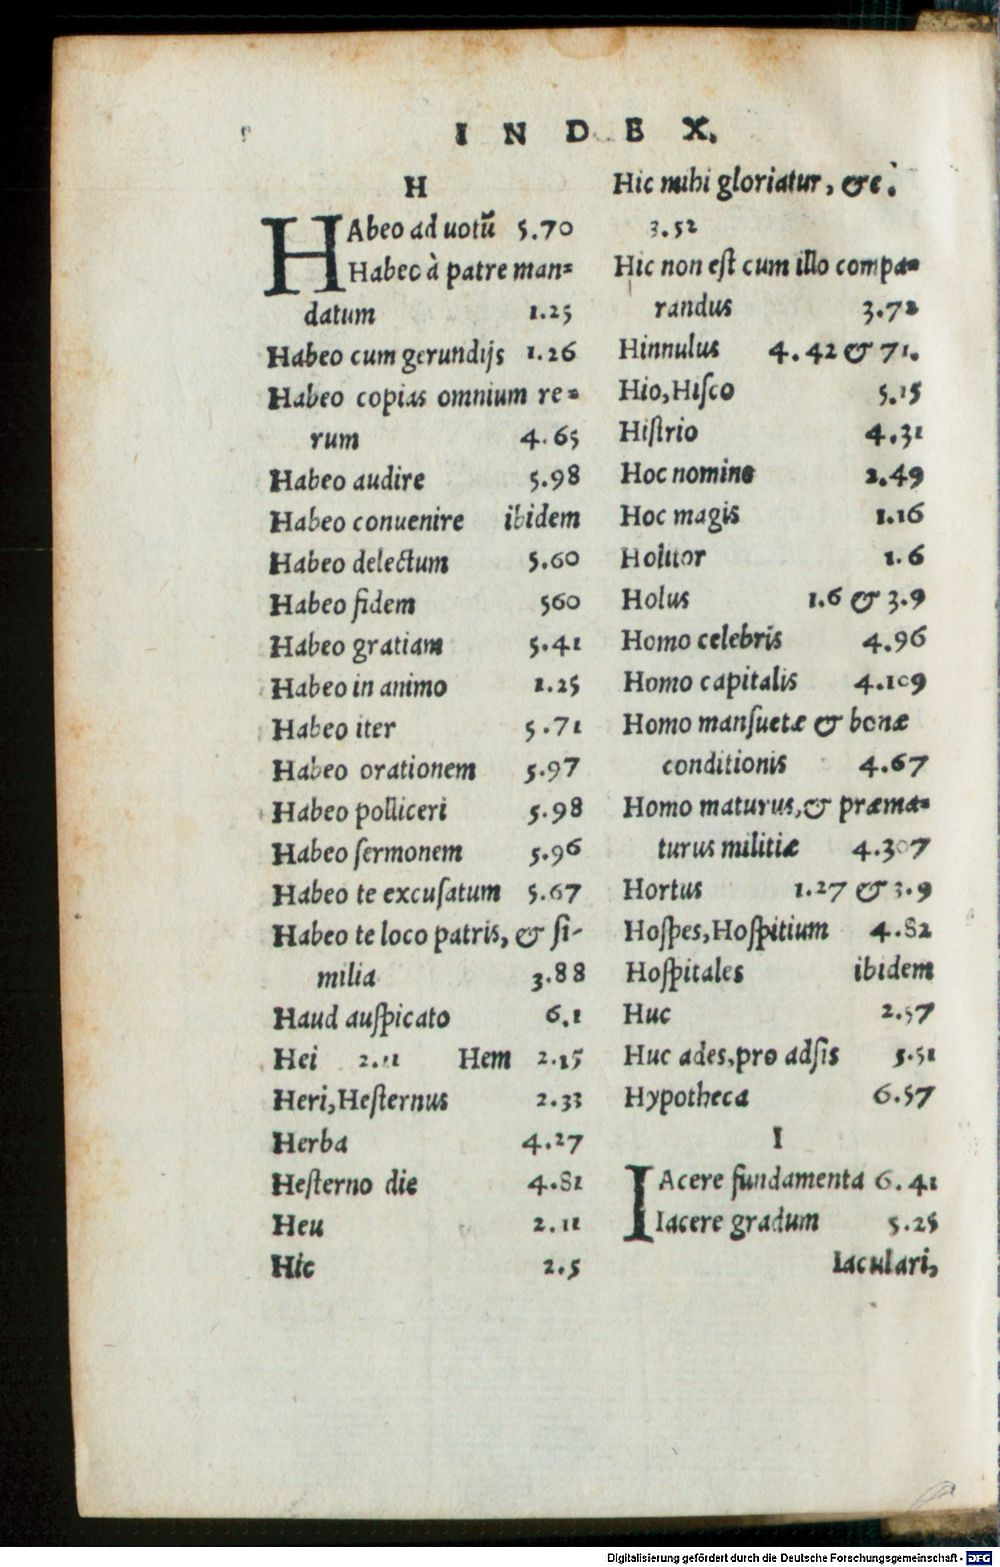 INDEX.
H
HAbeo ad uotū 5.70
Habeo à patre man=
datum 1.25
Habeo cum gerundijs 1.26
Habeo copias omnium re=
rum 4.65
Habeo audire 5.98
Habeo conuenire ibidem
Habeo delectum 5.60
Habeo fidem 560
Habeo gratiam 5.41
Habeo in animo 1.25
Habeo iter 5.71
Habeo orationem 5.97
Habeo polliceri 5.98
Habeo ſermonem 5.96
Habeo te excuſatum 5.67
Habeo te loco patris, & ſi-
milia 3.88
Haud auſpicato 6.1
Hei 2.11 Hem 2.15
Heri,Heſternus 2.33
Herba 4.27
Heſterno die 4.81
Heu 2.11
Hic 2.5
Hic mihi gloriatur, &c.
3.52
Hic non eſt cum illo compa=
randus 3.72
Hinnulus 4.42 & 71.
Hio,Hiſco 5.15
Hiſtrio 4.31
Hoc nomine 2.49
Hoc magis 1.16
Holitor 1.6
Holus 1.6 & 3.9
Homo celebris 4.96
Homo capitalis 4.109
Homo manſuetæ & bonæ
conditionis 4.67
Homo maturus,& præma=
turus militiæ 4.307
Hortus 1.27 & 3.9
Hoſpes,Hoſpitium 4.82
Hoſpitales ibidem
Huc 2.57
Huc ades,pro adſis 5.51
Hypotheca 6.57
I
IAcere fundamenta 6.41
Iacere gradum 5.25
Iaculari,
Digitalisierung gefördert durch die Deutsche Forschungsgemeinschaft - DFG